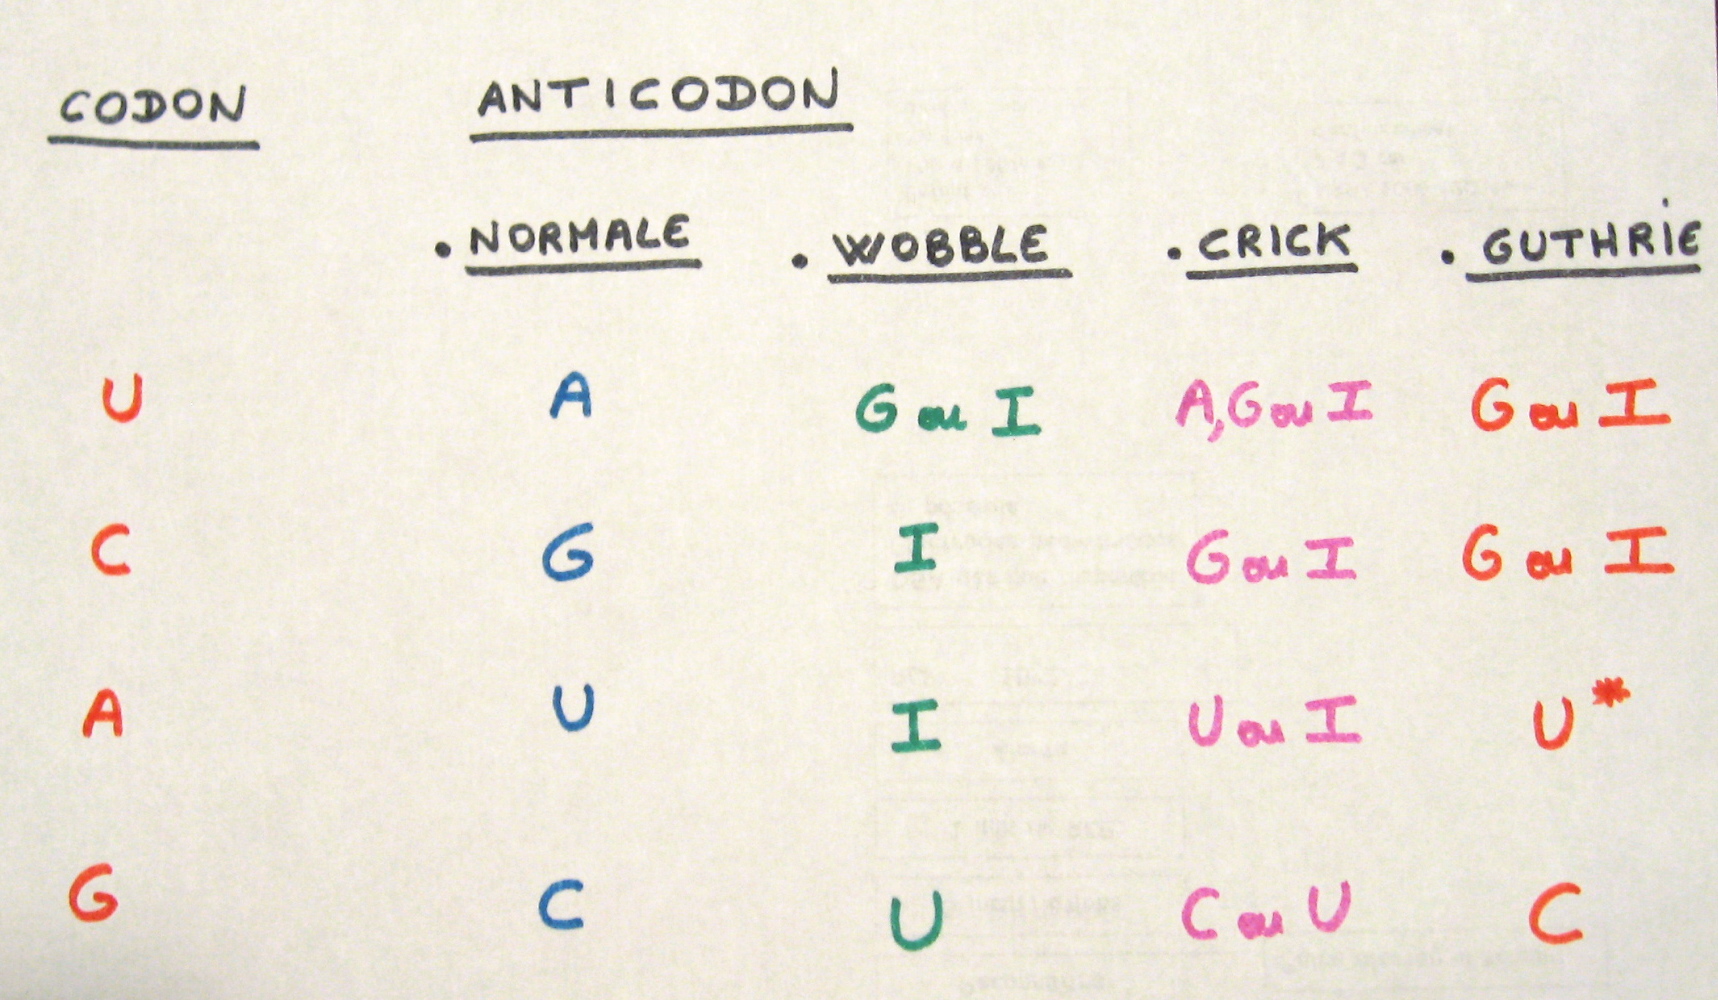 CODON ANTICODON
. NORMALE . WOBBLE . CRICK . GUTHRIE
U A G ou I A,G ou I G ou I
C G I G ou I G ou I
A U I U ou I U*
G C U C ou U C